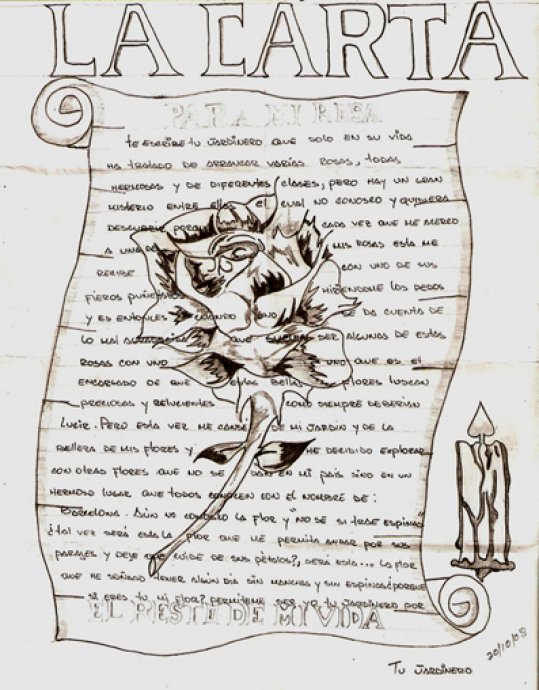 LA CARTA
PARA MI ROSA
te escribe tu Jardinero que solo en su vida
ha tratado de arrancar varias rosas, todas
hermosas y de diferentes clases, pero hay un gran
misterio entre ellas el cual no conosco y quisiera
descubrir porque cada vez que me acerco
a una de mis rosas esta me
recibe con uno de sus
fieros puñetazos hiriendome los dedos
y es entonces cuando uno se da cuenta de
lo mal que suelen ser algunas de estas
rosas con uno y uno que es el
encargado de que estas bellas flores luscan
preciosas y relucientes como siempre deberian
lucir. Pero esta vez me cansé de mi jardin y de la
belleza de mis flores y he decidido explorar
con otras flores que no se dan en mi pais sino en un
hermoso lugar que todos conocen con el nombre de:
Barcelona. Aún no conosco la flor y "no se si trae espinas"
¿tal vez será esta la flor que me permita andar por sus
parajes y deje que cuide de sus pétalos?, será esta... la flor
que he soñado tener algún dia sin manchas y sin espinas¿porque
si eres tu mi flor? permiteme ser yo tu jardinero por
EL RESTE DE MI VIDA
20/10/08
Tu Jardinero